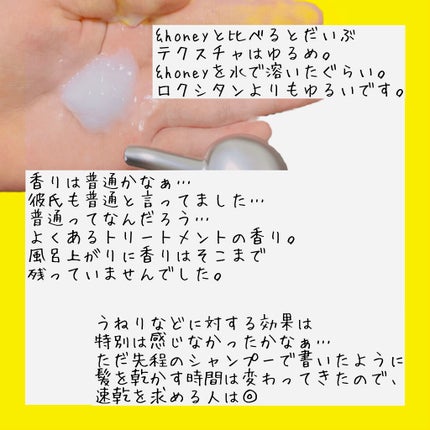 &honeyと比べるとだいぶ
テクスチャはゆるめ。
&honeyを水で溶いたぐらい。
ロクシタンよりもゆるいです。
香りは普通かなぁ…
彼氏も普通と言ってました…
普通ってなんだろう…
よくあるトリートメントの香り。
風呂上がりに香りはそこまで
残っていませんでした。
うねりなどに対する効果は
特別は感じなかったかなぁ…
ただ先程のシャンプーで書いたように
髪を乾かす時間は変わってきたので、
速乾を求める人は◎